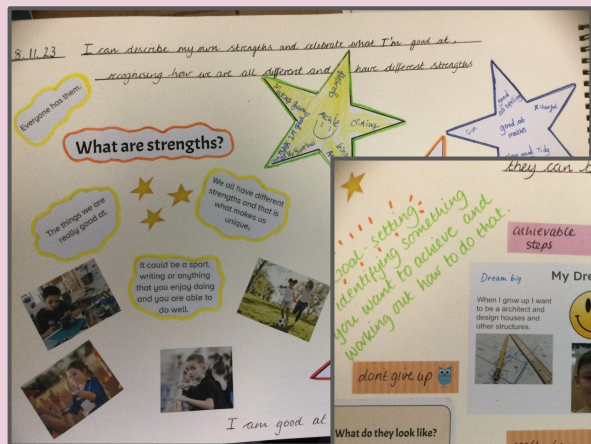 8.11.23 I can describe my own strengths and celebrate what I'm good at,
recognising how we are all different and have different strengths
Everyone has them.
What are strengths?
The things we are
really good at.
We all have different
strengths and that is
what makes us
unique.
It could be a sport,
writing or anything
that you enjoy doing
and you are able to
do well.
gaming
good
at spelling
good at
maths
Tidy
I am good at
they can
goal setting
identifying something
you want to achieve and
working out how to do that.
achievable
steps
Dream big
My Dre
When I grow up I want
to be a architect and
design houses and
other structures.
dont give up
What do they look like?